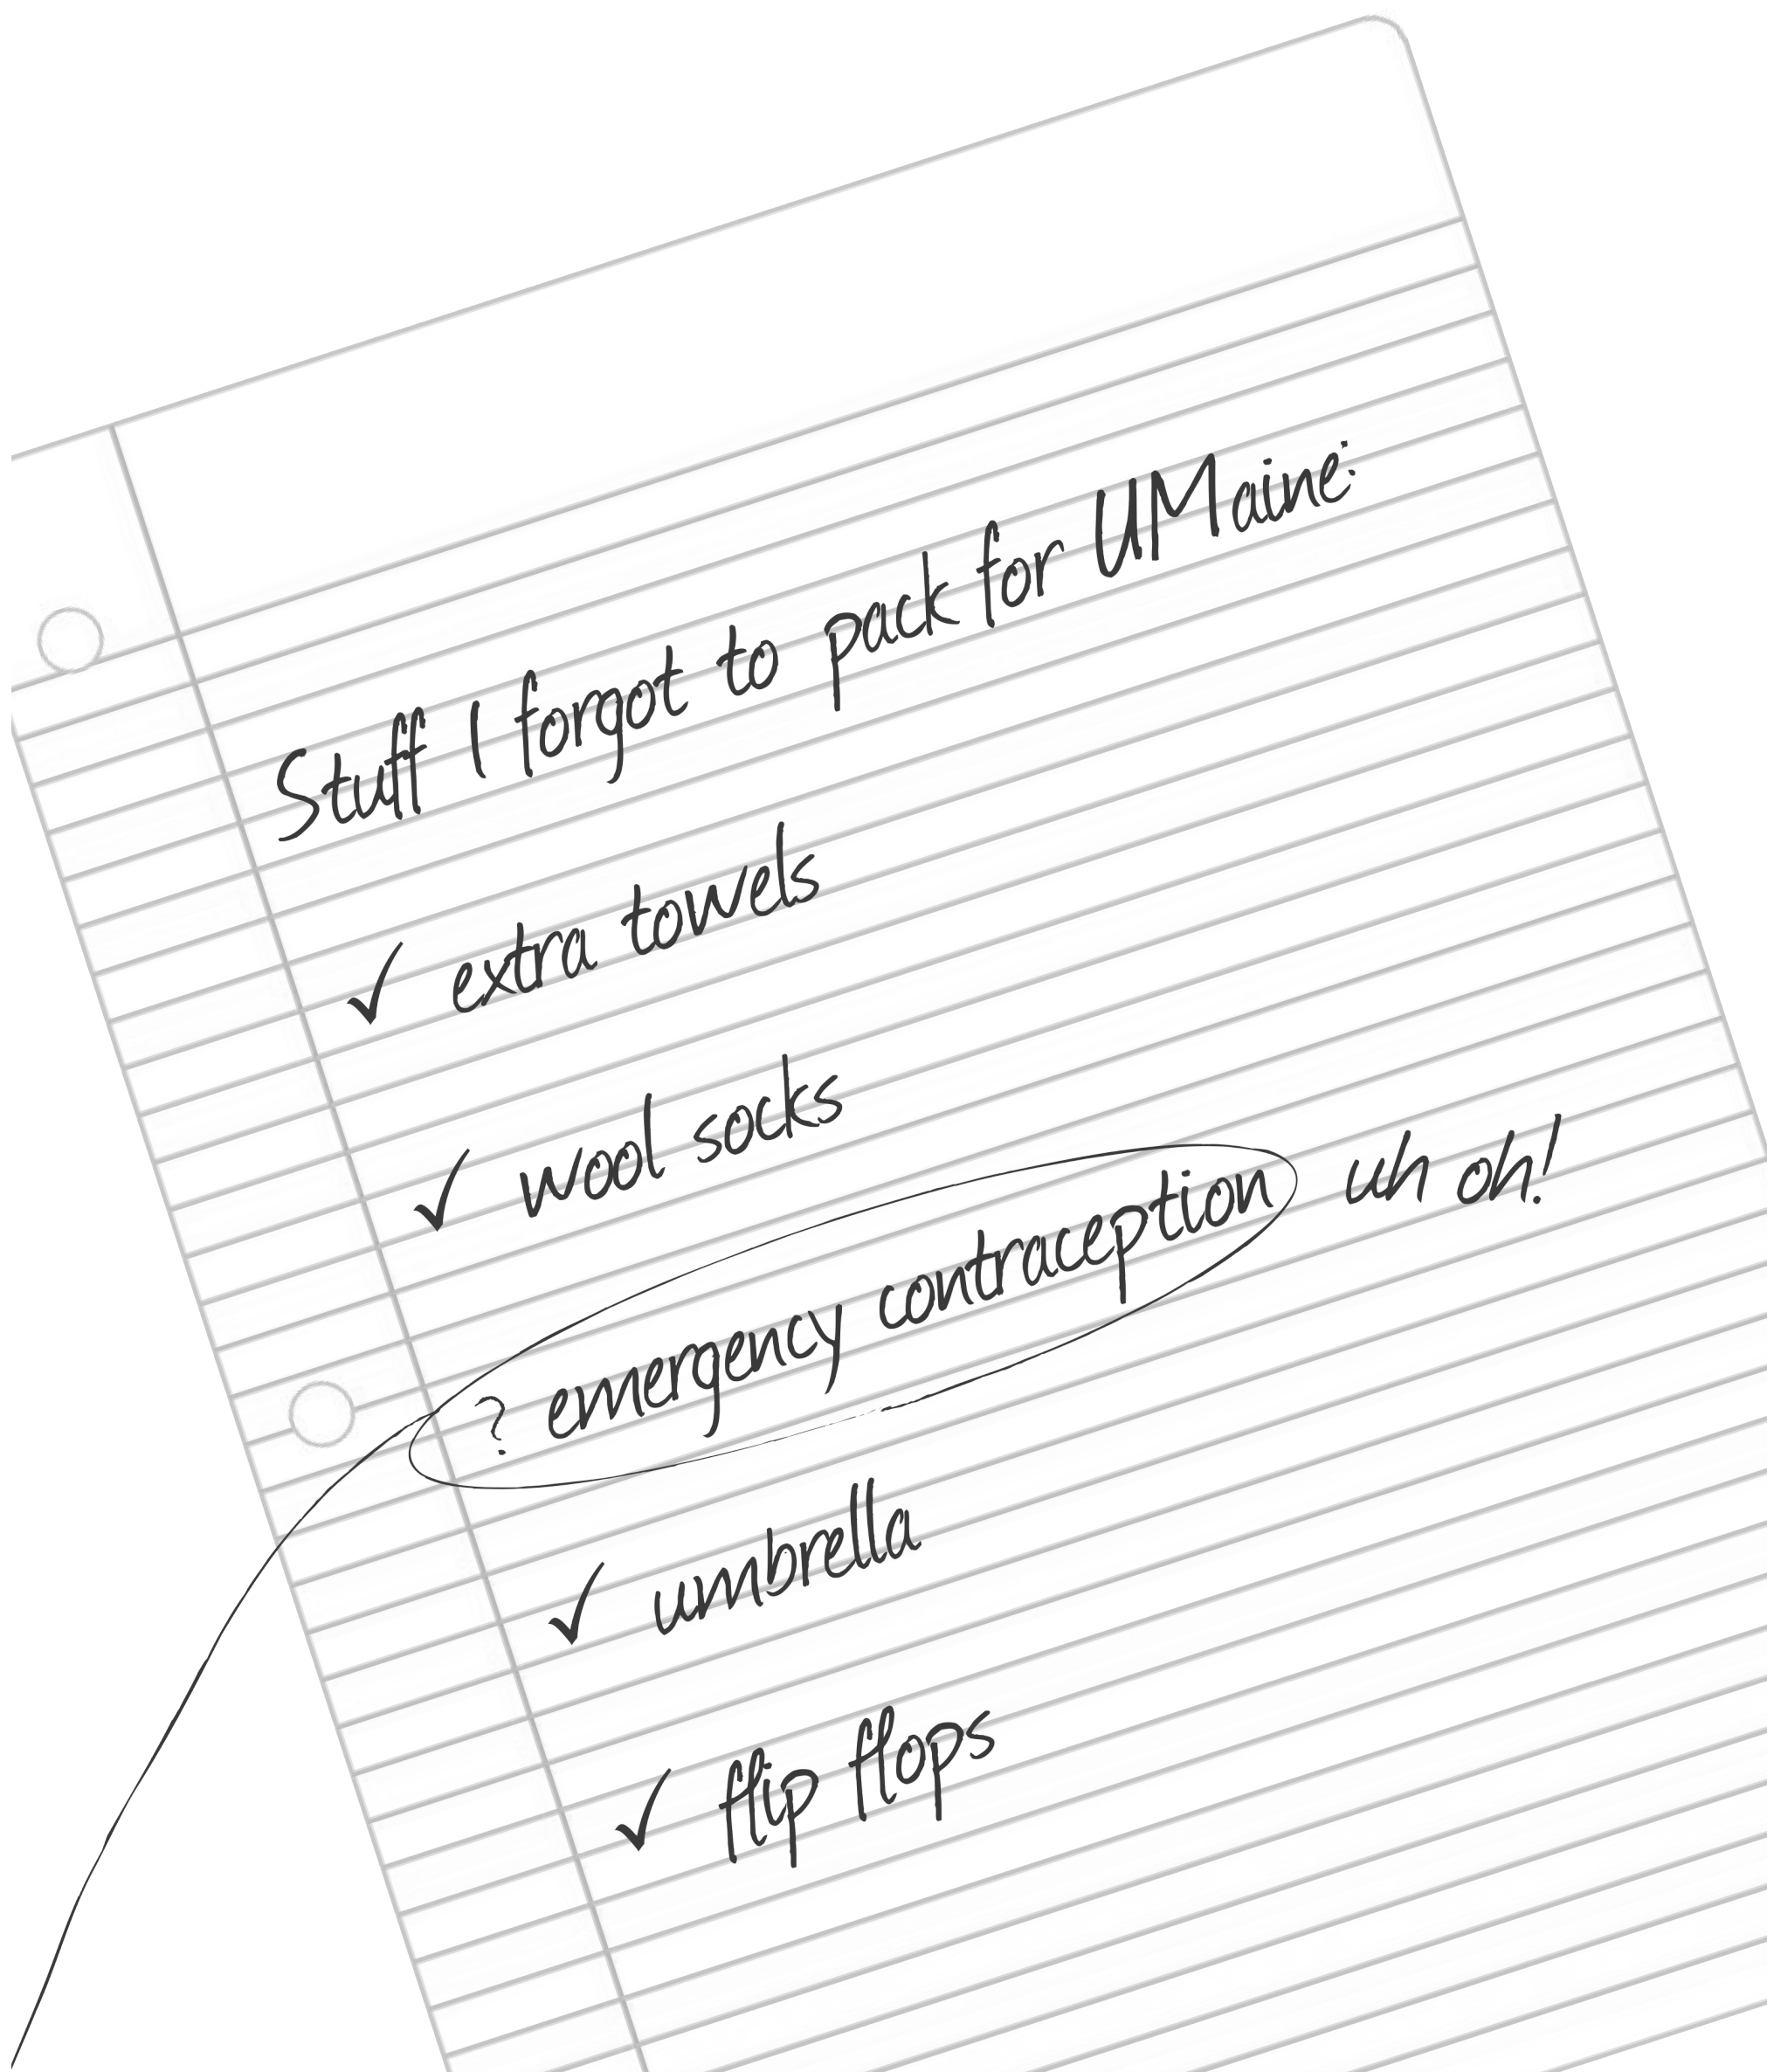 Stuff I forgot to pack for UMaine:
✓ extra towels
✓ wool socks
? emergency contraception uh oh!
✓ umbrella
✓ flip flops